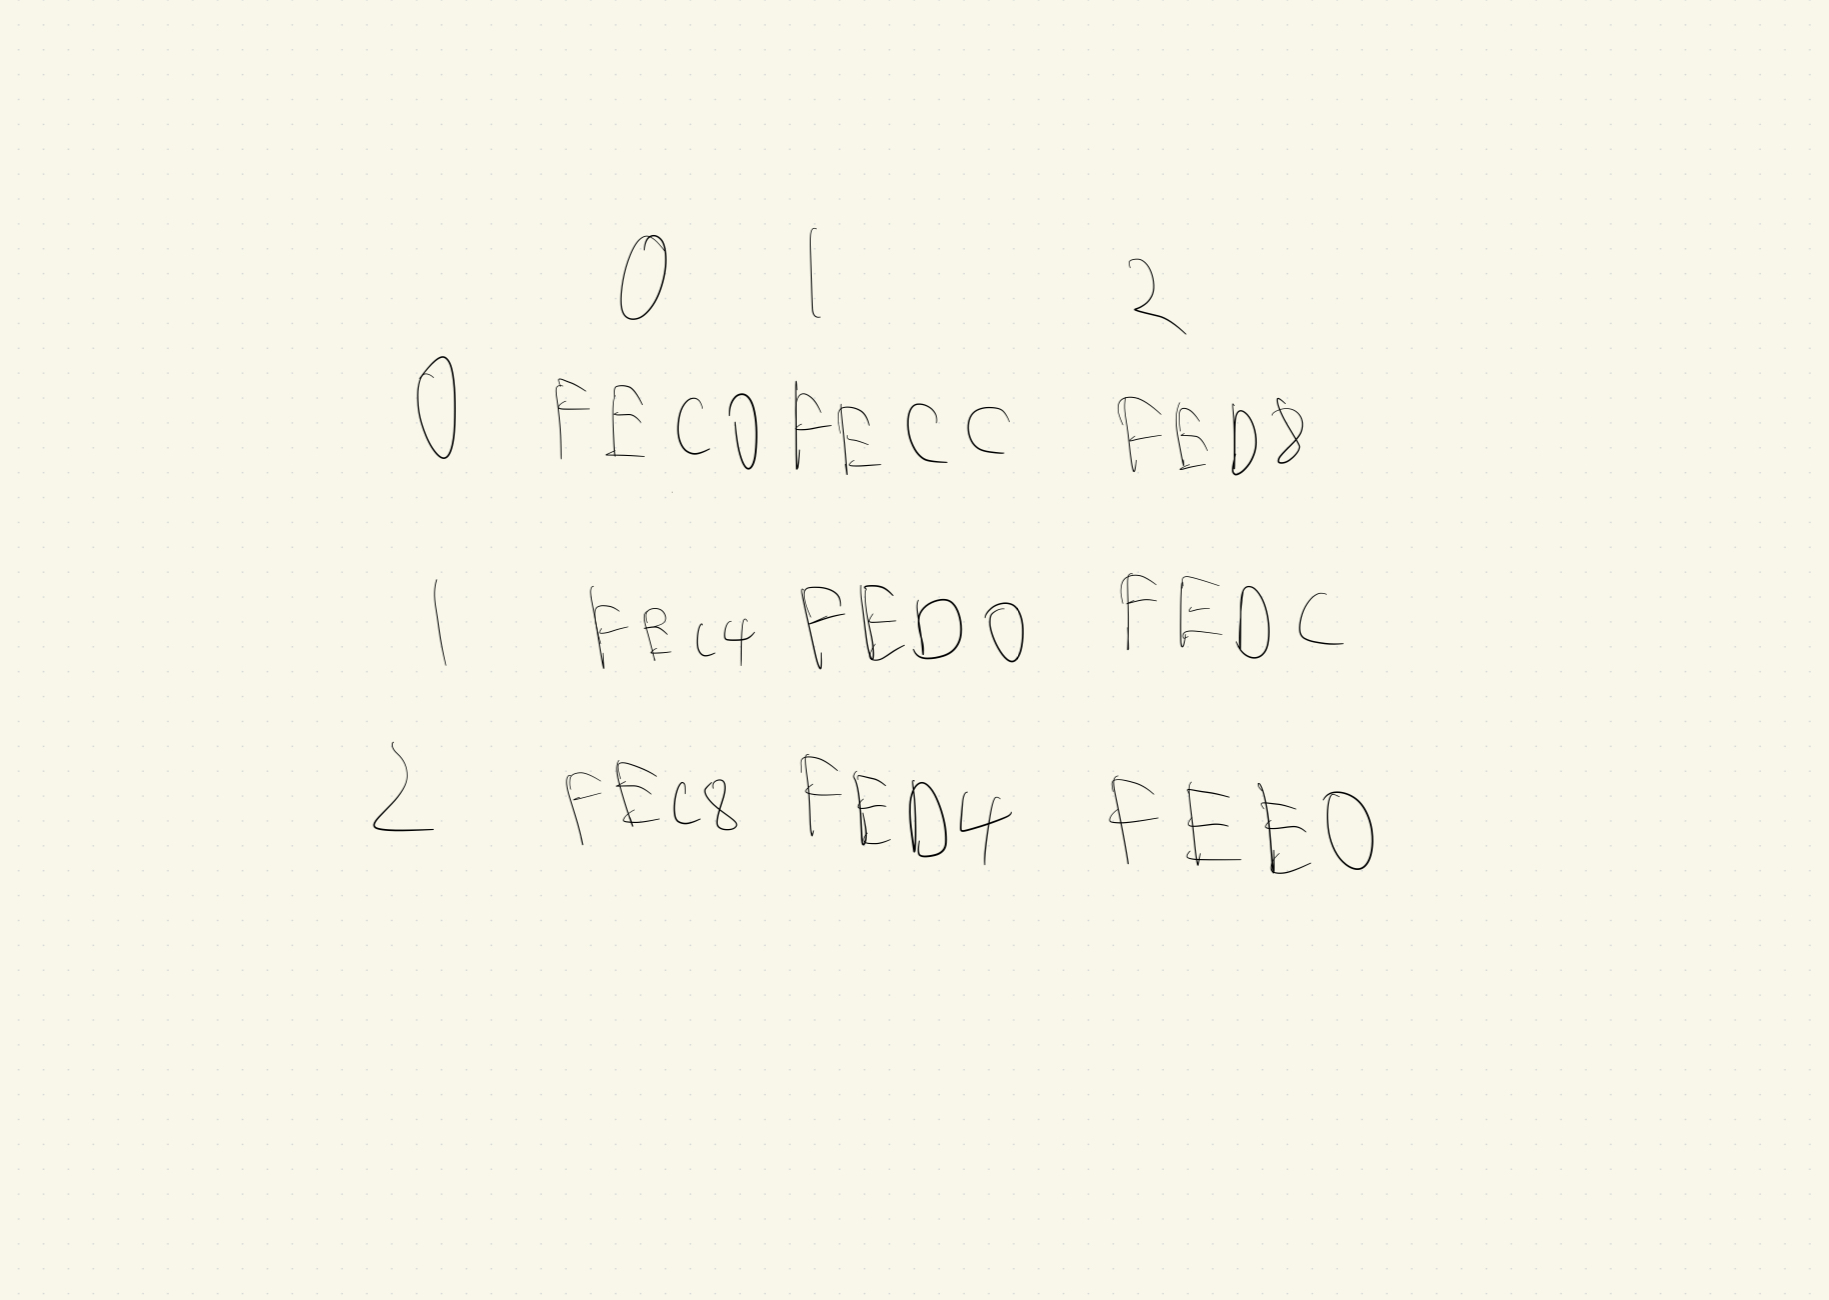 0 1 2
0 FEC0 FECC FED8
1 FEC4 FED0 FEDC
2 FEC8 FED4 FEE0